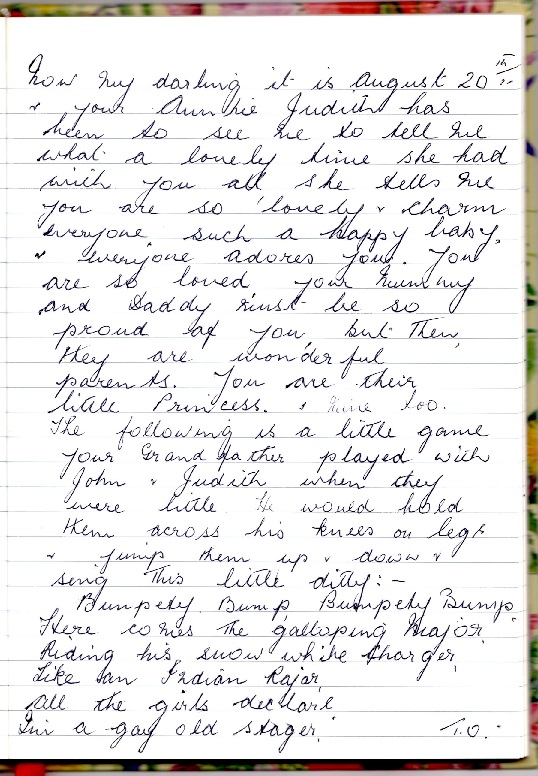 Now my darling it is August 20th
& your Auntie Judith has
been to see me to tell me
what a lovely time she had
with you all she tells me
you are so lovely & charm
everyone, such a happy baby,
& everyone adores you. You
are so loved, your Mummy
and Daddy must be so
proud of you, but then,
they are wonderful
parents. You are their
little Princess. & mine too.
The following is a little game
your Grandfather played with
John & Judith when they
were little. He would hold
them across his knees on legs
& jump them up & down &
sing this little ditty:-
Bumpety Bump, Bumpety Bump
Here comes the galloping Major,
Riding his snow white Charger,
Like an Indian Rajar,
All the girls declare
I'm a gay old stager.
T.O.